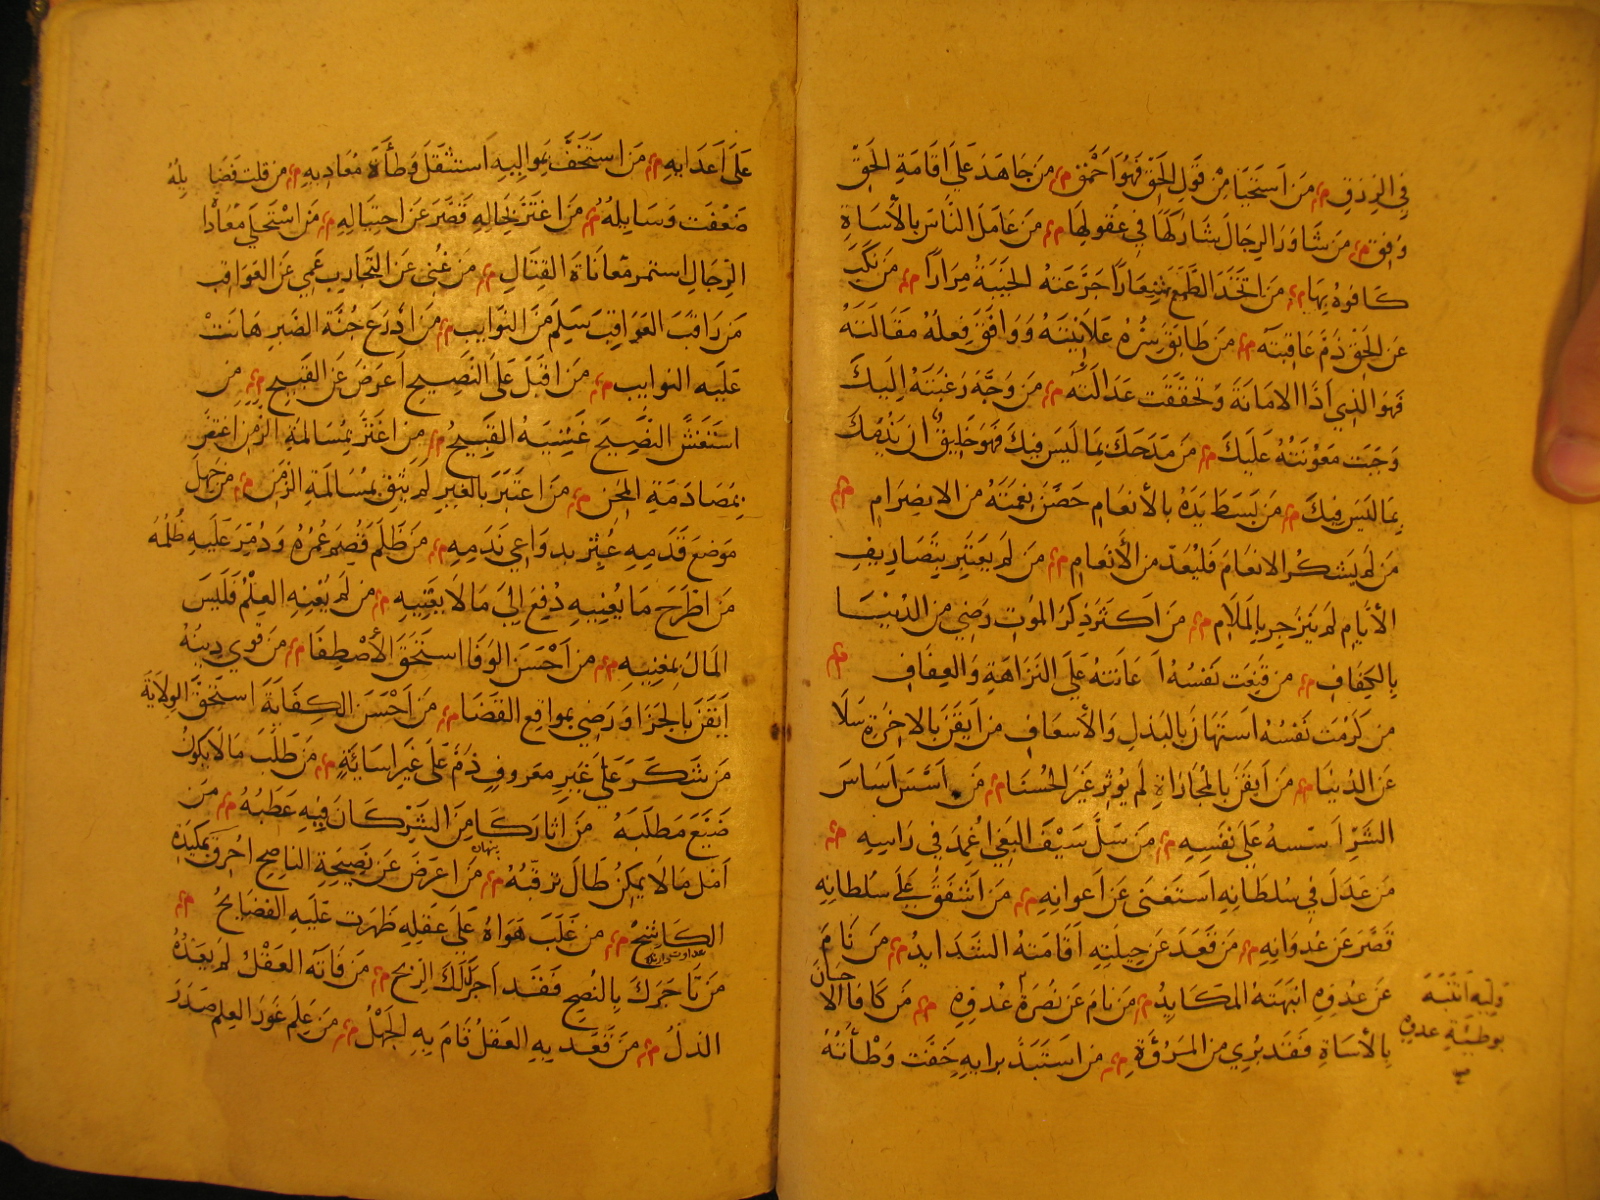 في الرزق م من استحيا من قول الحق فهو احمق م من جاهد على اقامة الحق
وفق م من شاور الرجال شاركها في عقولها م من عامل الناس بالأساة
كافوه بها م من اتخذ الطمع شعارا جرعته الخيبة مرارا م من نكب
عن الحق ذم عاقبته م من طابق سره علانيته ووافق فعله مقالته
فهو الذي ادا الامانة وتحققت عدالته م من وجه رغبته اليك
وجبت معونته عليك م من مدحك بما ليس فيك فهو خليق ان يذمك
بما ليس فيك م من بسط يده بالأنعام حصن نعمته من الانصرام م
من لم يشكر الانعام فليعد من الأنعام م من لم يعتبر بتصاريف
الأيام لم ينزجر بالملام م من اكثر ذكر الموت رضي من الدنيا
بالكفاف م من قنعت نفسه اعانته على النزاهة والعفاف م
من كرمت نفسه استهان بالبذل والأسعاف من ايقن بالاخرة سلا
عن الدنيا م من ايقن بالمجازاة لم يوثر غير الحسنا م من اسس اساس
الشر اسسه على نفسه م من سل سيف البغي اغمد في راسه م
من عدل في سلطانه استغنى عن اعوانه م من اشفق على سلطانه
قصر عن عدوانه م من قعد عن حيلته اقامته الشدايد م من نام
عن عدوه انبهته المكايد م من نام عن نصرة عدوه م من كافا الاحسان
بالأساة فقد بري من المروة م من استبد برايه خفت وطأته
وليه انتبه
بوطيه عدوه
على اعدايه م من استخف بمواليه استثقل وطأة معاديه م من قلت فضايله
ضعفت وسايله م من اغتر بحاله قصر عن احتياله م من استحلى معادا
الرجال استمر معاناة القتال م من غني عن التجارب عمي عن العواقب
من راقب العواقب سلم من النوايب م من ادرع جنة الصبر هانت
عليه النوايب م من اقبل على النصيح اعرض عن القبيح م من
استغش النصيح غشيه القبيح م من اغتر بمسالمة الزمن اغتص
بمصادمة المحن م من اعتبر بالغير لم يثق بمسالمة الزمن م من جهل
موضع قدمه عثر بدواعي ندمه م من ظلم قصم عمره ودمر عليه ظلمه
من اطرح ما يعنيه دفع الى ما لا يغنيه م من لم يغنه العلم فليس
المال بمغنيه م من احسن الوفا استحق الأصطفا م من قوي دينه
ايقن بالجزا ورضي بمواقع القضا م من احسن الكفاية استحق الولاية
من شكر على غير معروف ذم على غير اساية م من طلب ما لا يكون
ضيع مطلبه من اثار كامن الشر كان فيه عطبه م من
پنهان
امل ما لا يمكن طال ترقبه م من اعرض عن نصيحة الناصح احرق بمكيدة
الكاشح م من غلب هواه على عقله ظهرت عليه الفضايح م
من تاجرك بالنصح فقد اجزل لك الربح م من فاته العقل لم يعده
الذل م من قعد به العقل قام به الجهل م من علم غور العلم صدر